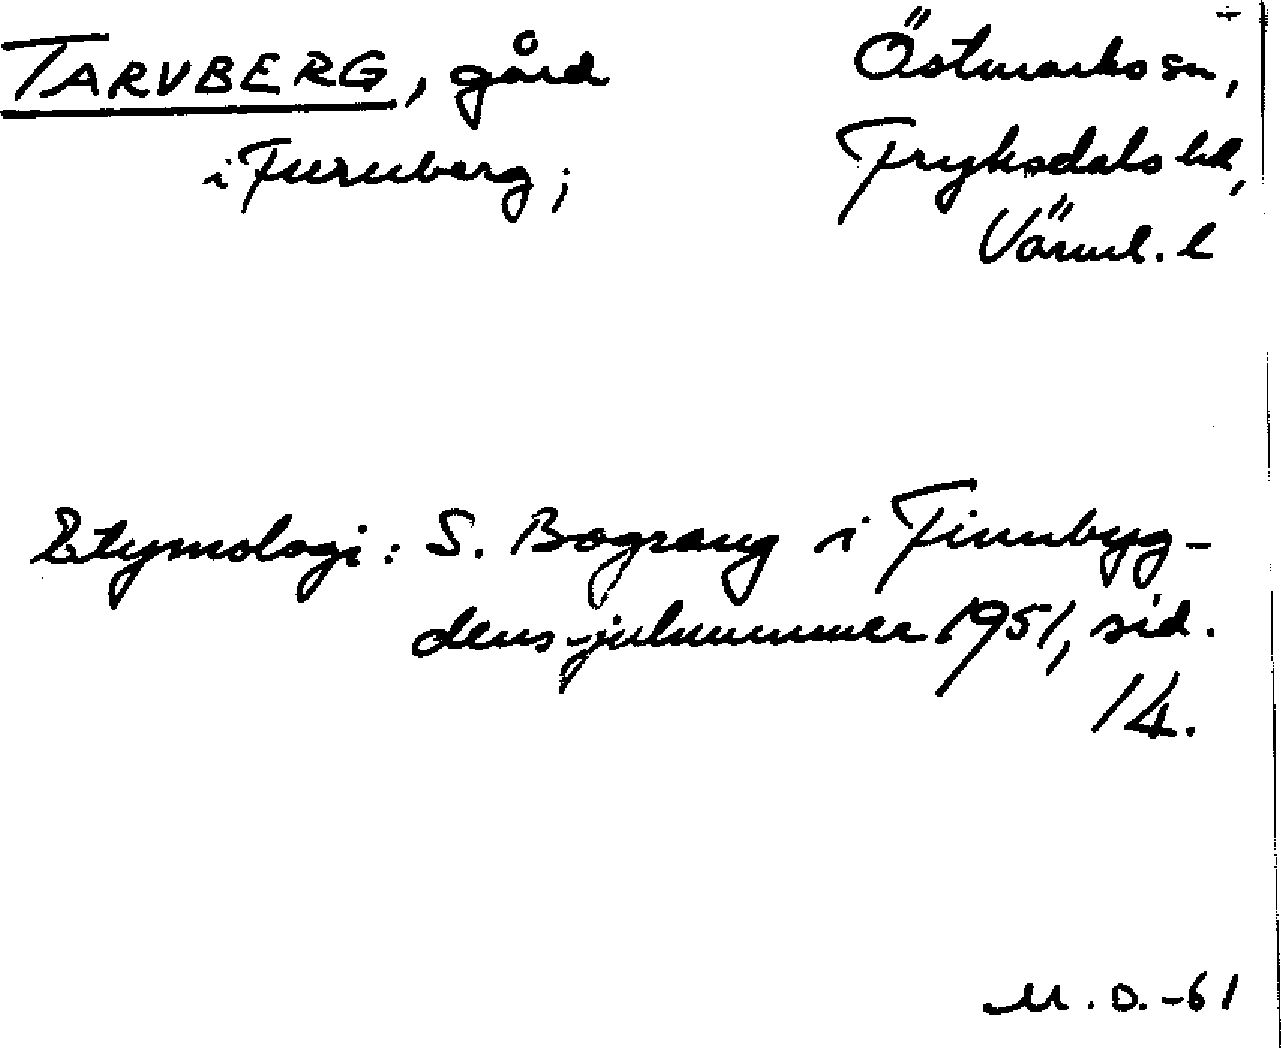 TARVBERG, gård
i Furuberg;
Östmarks sn,
Fryksdals hd,
Värml. l
Etymologi: S. Bograng i Finnbyg-
dens julnummer 1951, sid.
14.
M.O.-61